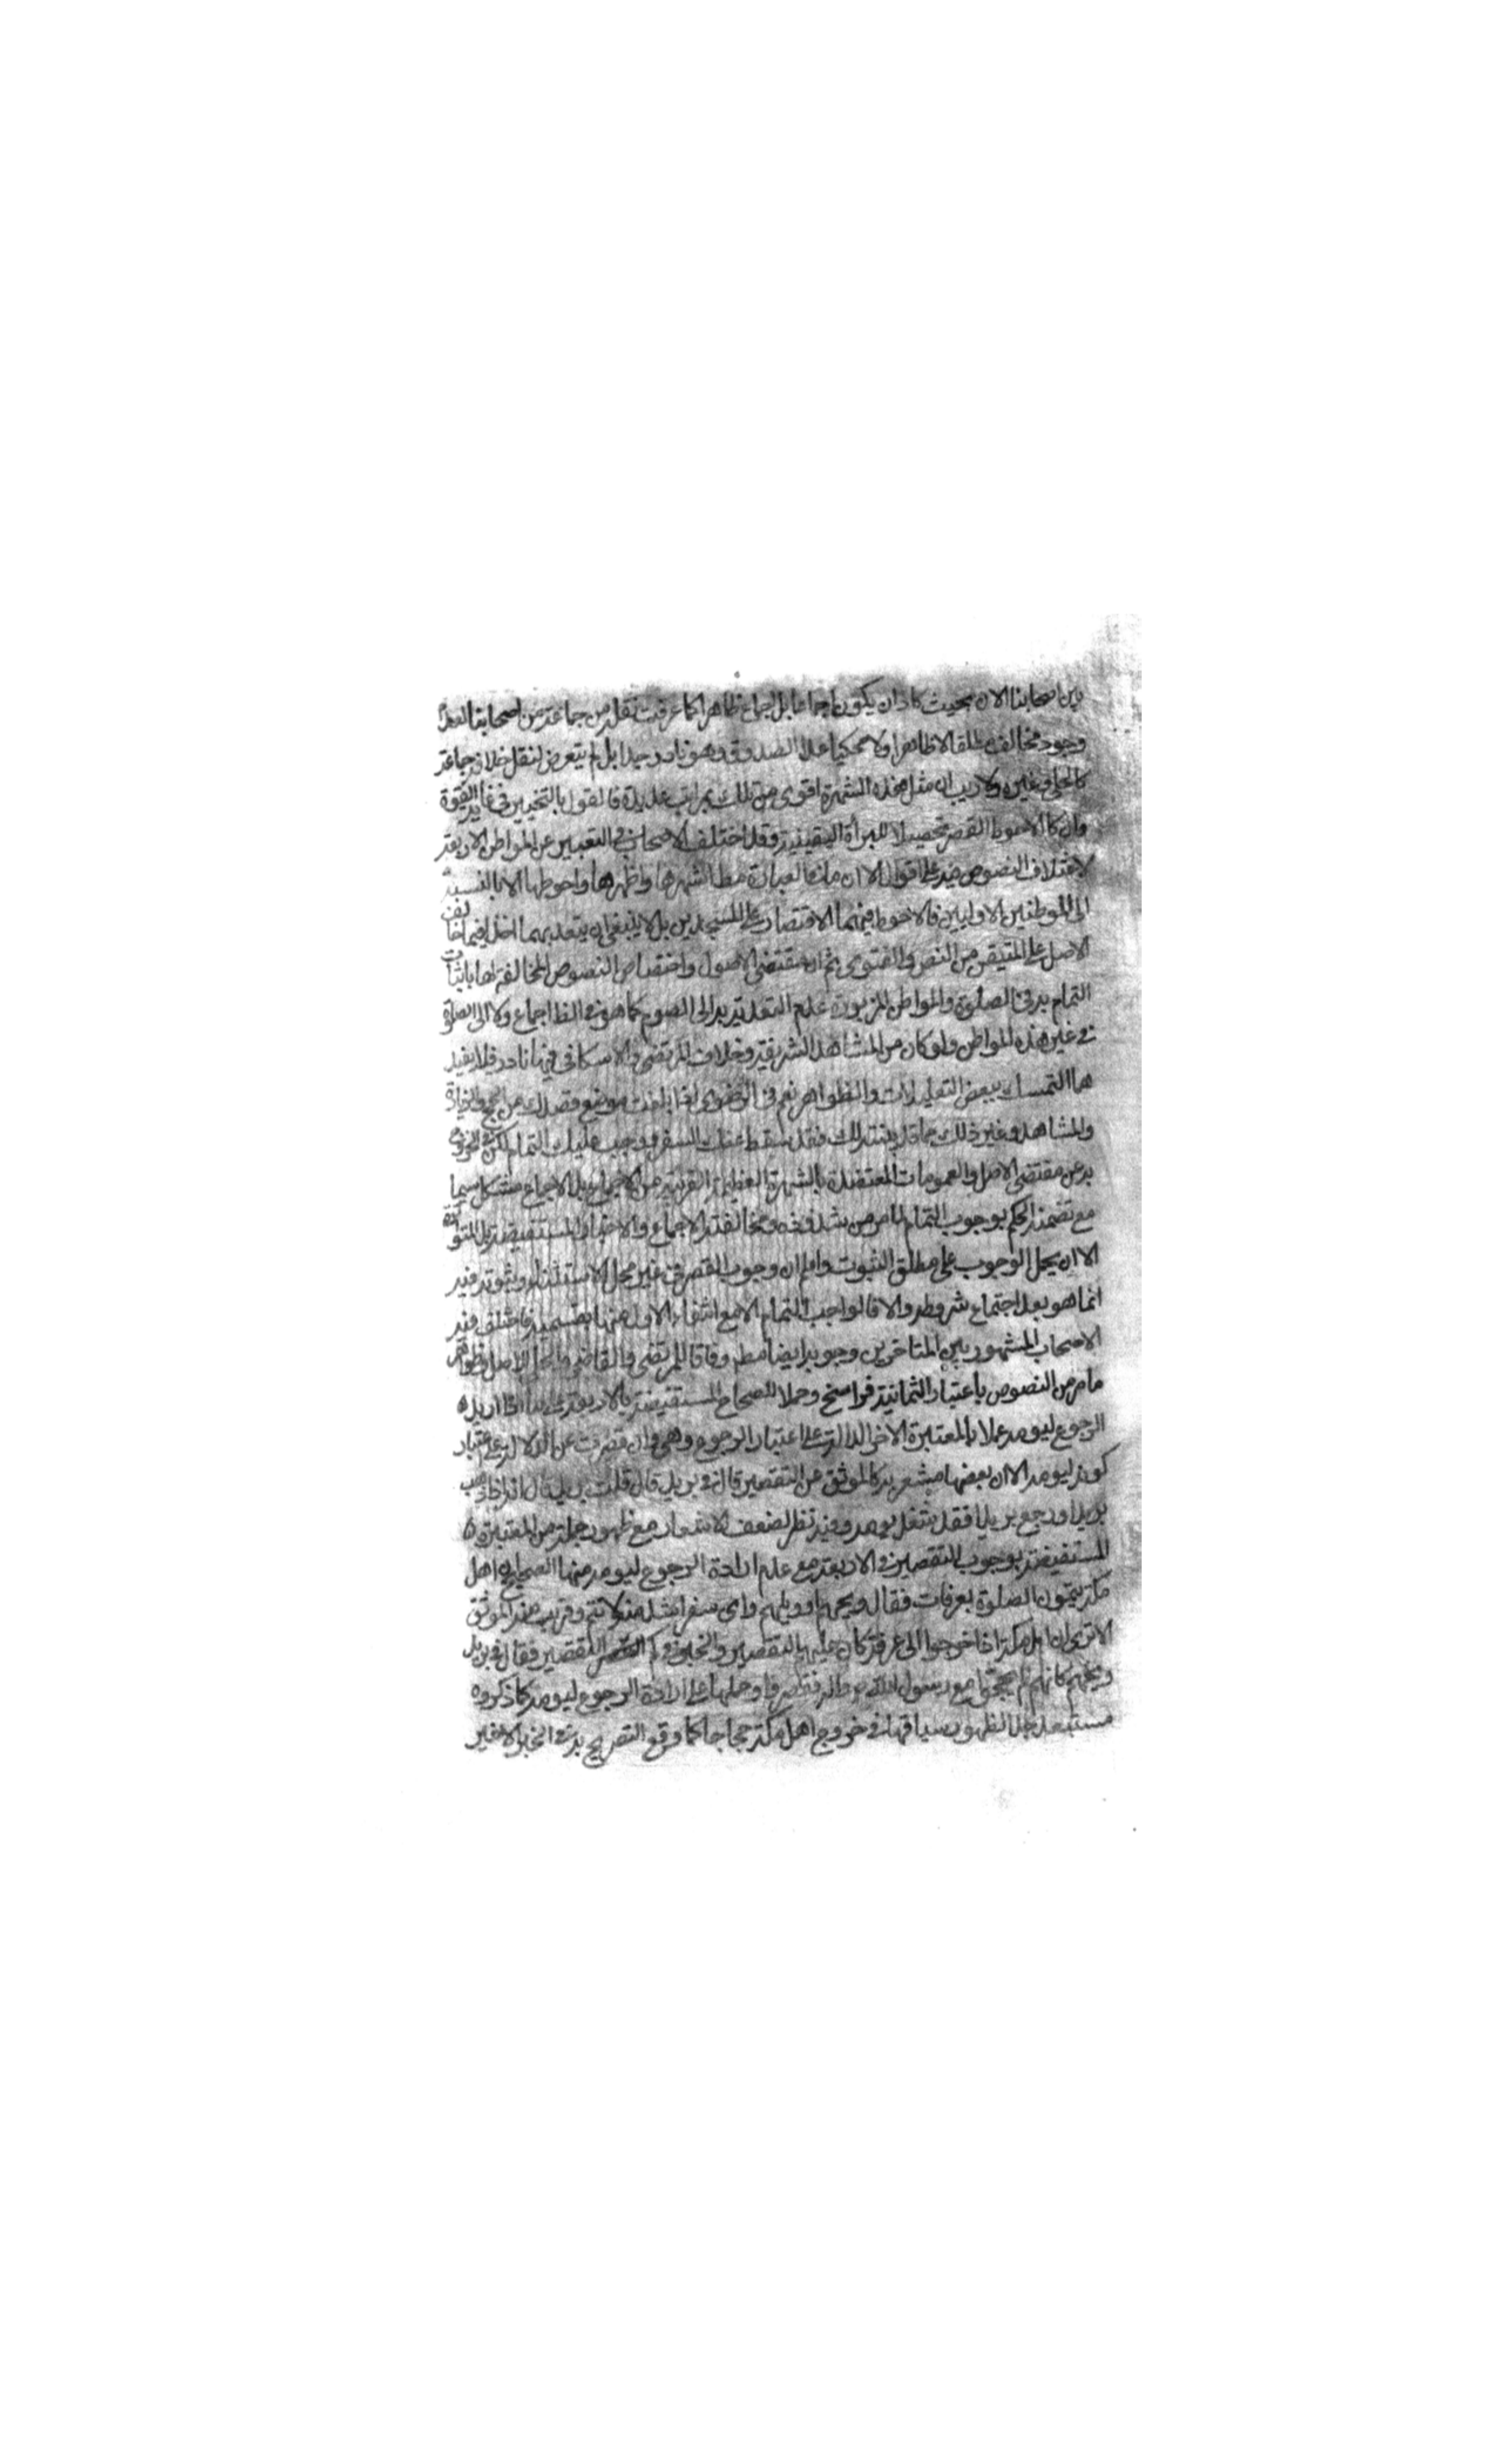 بين اصحابنا الان بحيث كاد ان يكون اجماعا بل اجماع ظاهرا كما عرفت نقله من جماعة من اصحابنا لعدم
وجود مخالف مطلقا لا ظاهرا ولا محكيا عدا الصدوق وهو نادر جدا بل لم يتعرض لنقل خلافه جماعة
كالحلي وغيره ولا ريب ان مثل هذه الشهرة اقوى من تلك بمراتب عديدة فالقول بالتخيير في غاية القوة
وان كا الاحوط القصر تحصيلا للبراة اليقينية وقد اختلف الاصحاب في التعبير عن المواطن الاربعة
لاختلاف النصوص فيه على اقوال الا ان ما في العبارة مط اشهرها واظهرها واحوطها الا بالنسبة
الى الموطنين الاوليين فالاحوط فيهما الاقتصار على المسجدين بل لا ينبغي ان يتعدى بهما اخذا فيما خالف
الاصل على المتيقن من النص والفتوى ثم ان مقتضى الاصول واختصاص النصوص المخالفة لها باثبات
التمام به في الصلوة والمواطن المزبورة عدم التعدية به الى الصوم كما هو في الظ اجماع ولا الى الصلوة
في غير هذه المواطن ولو كان من المشاهد الشريفة وخلاف المرتضى والاسكافي فيهما نادر فلا يفيد
هما التمسك ببعض التعليلات والظواهر نعم في الرضوي اذا بلغت موضع قصدك من الحج والزيارة
والمشاهد وغير ذلك مما قد بينته لك فقد سقط عنك السفر ووجب عليك التمام لكن في الخروج
به عن مقتضى الاصل والعمومات المعتضدة بالشهرة العظيمة القريبة من الاجماع بل الاجماع مشكل سيما
مع تضمنه الحكم بوجوب التمام لما مر من شذوذه ومخالفته الاجماع والاخبار المستفيضة بل المتواترة
الا ان يحمل الوجوب على مطلق الثبوت واعلم ان وجوب القصر في غير محل الاستثناء وثبوته فيه
انما هو بعد اجتماع شروطه والا فالواجب التمام الا مع انتفاء الاول منها بقسميه فاختلف فيه
الاصحاب المشهور بين المتاخرين وجوبه ايضا مطم وفاقا للمرتضى والقاضي والحلي للاصل وظواهر
ما مر من النصوص باعتبار الثمانية فراسخ وحملا للصحاح المستفيضة بالاربعة على ما اذا اريد
الرجوع ليومه عملا بالمعتبرة الاخر الدالة على اعتبار الرجوع وهي وان قصرت عن الدلالة على اعتبار
كونه ليومه الا ان بعضها مشعر به كالموثق عن التقصير قال في بريد قال قلت بريد قال انه اذا ذهب
بريدا ورجع بريدا فقد شغل يومه وفيه نظر لضعف الاشعار مع ظهور جملة من المعتبرة
المستفيضة بوجوب التقصير في الاربعة مع عدم ارادة الرجوع ليومه منها الصحيح ان اهل
مكة يتمون الصلوة بعرفات فقال ويحهم او ويلهم واى سفر اشد منه لا تتم وقريب منه الموثق
الا ترى ان اهل مكة اذا خرجوا الى عرفة كان عليهم التقصير والخبر في كم التقصير فقال في بريد
ويحهم كانهم لم يحجوا مع رسول الله ص واله فقصروا وحملها على ارادة الرجوع ليومه كما ذكروه
مستبعد جدا لظهور سياقها في خروج اهل مكة حجاجا كما وقع التصريح به في الخبر الاخير